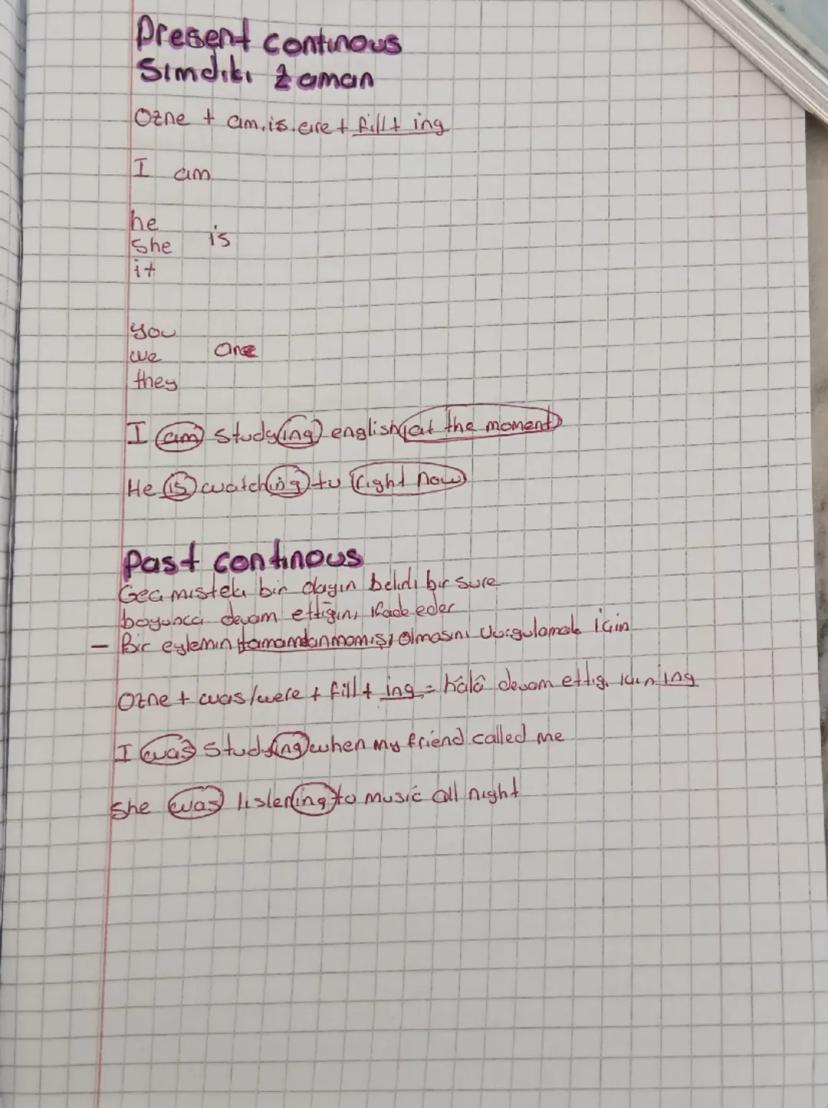 Present continous
Simdiki zaman
Ozne + am.is.are + fiil + ing
I am
he
she is
it
you
we are
they
I am studying english (at the moment)
He is watching tv (right now)
past continous
Gecmisteki bir olayın belirli bir sure
boyunca devam ettiğini ifade eder
- Bir eylemin tamamlanmamış olmasını vurgulamak için
Ozne + was/were + fill + ing = hâlâ devam ettiği için ing
I was studying when my friend called me
she was listening to music all night